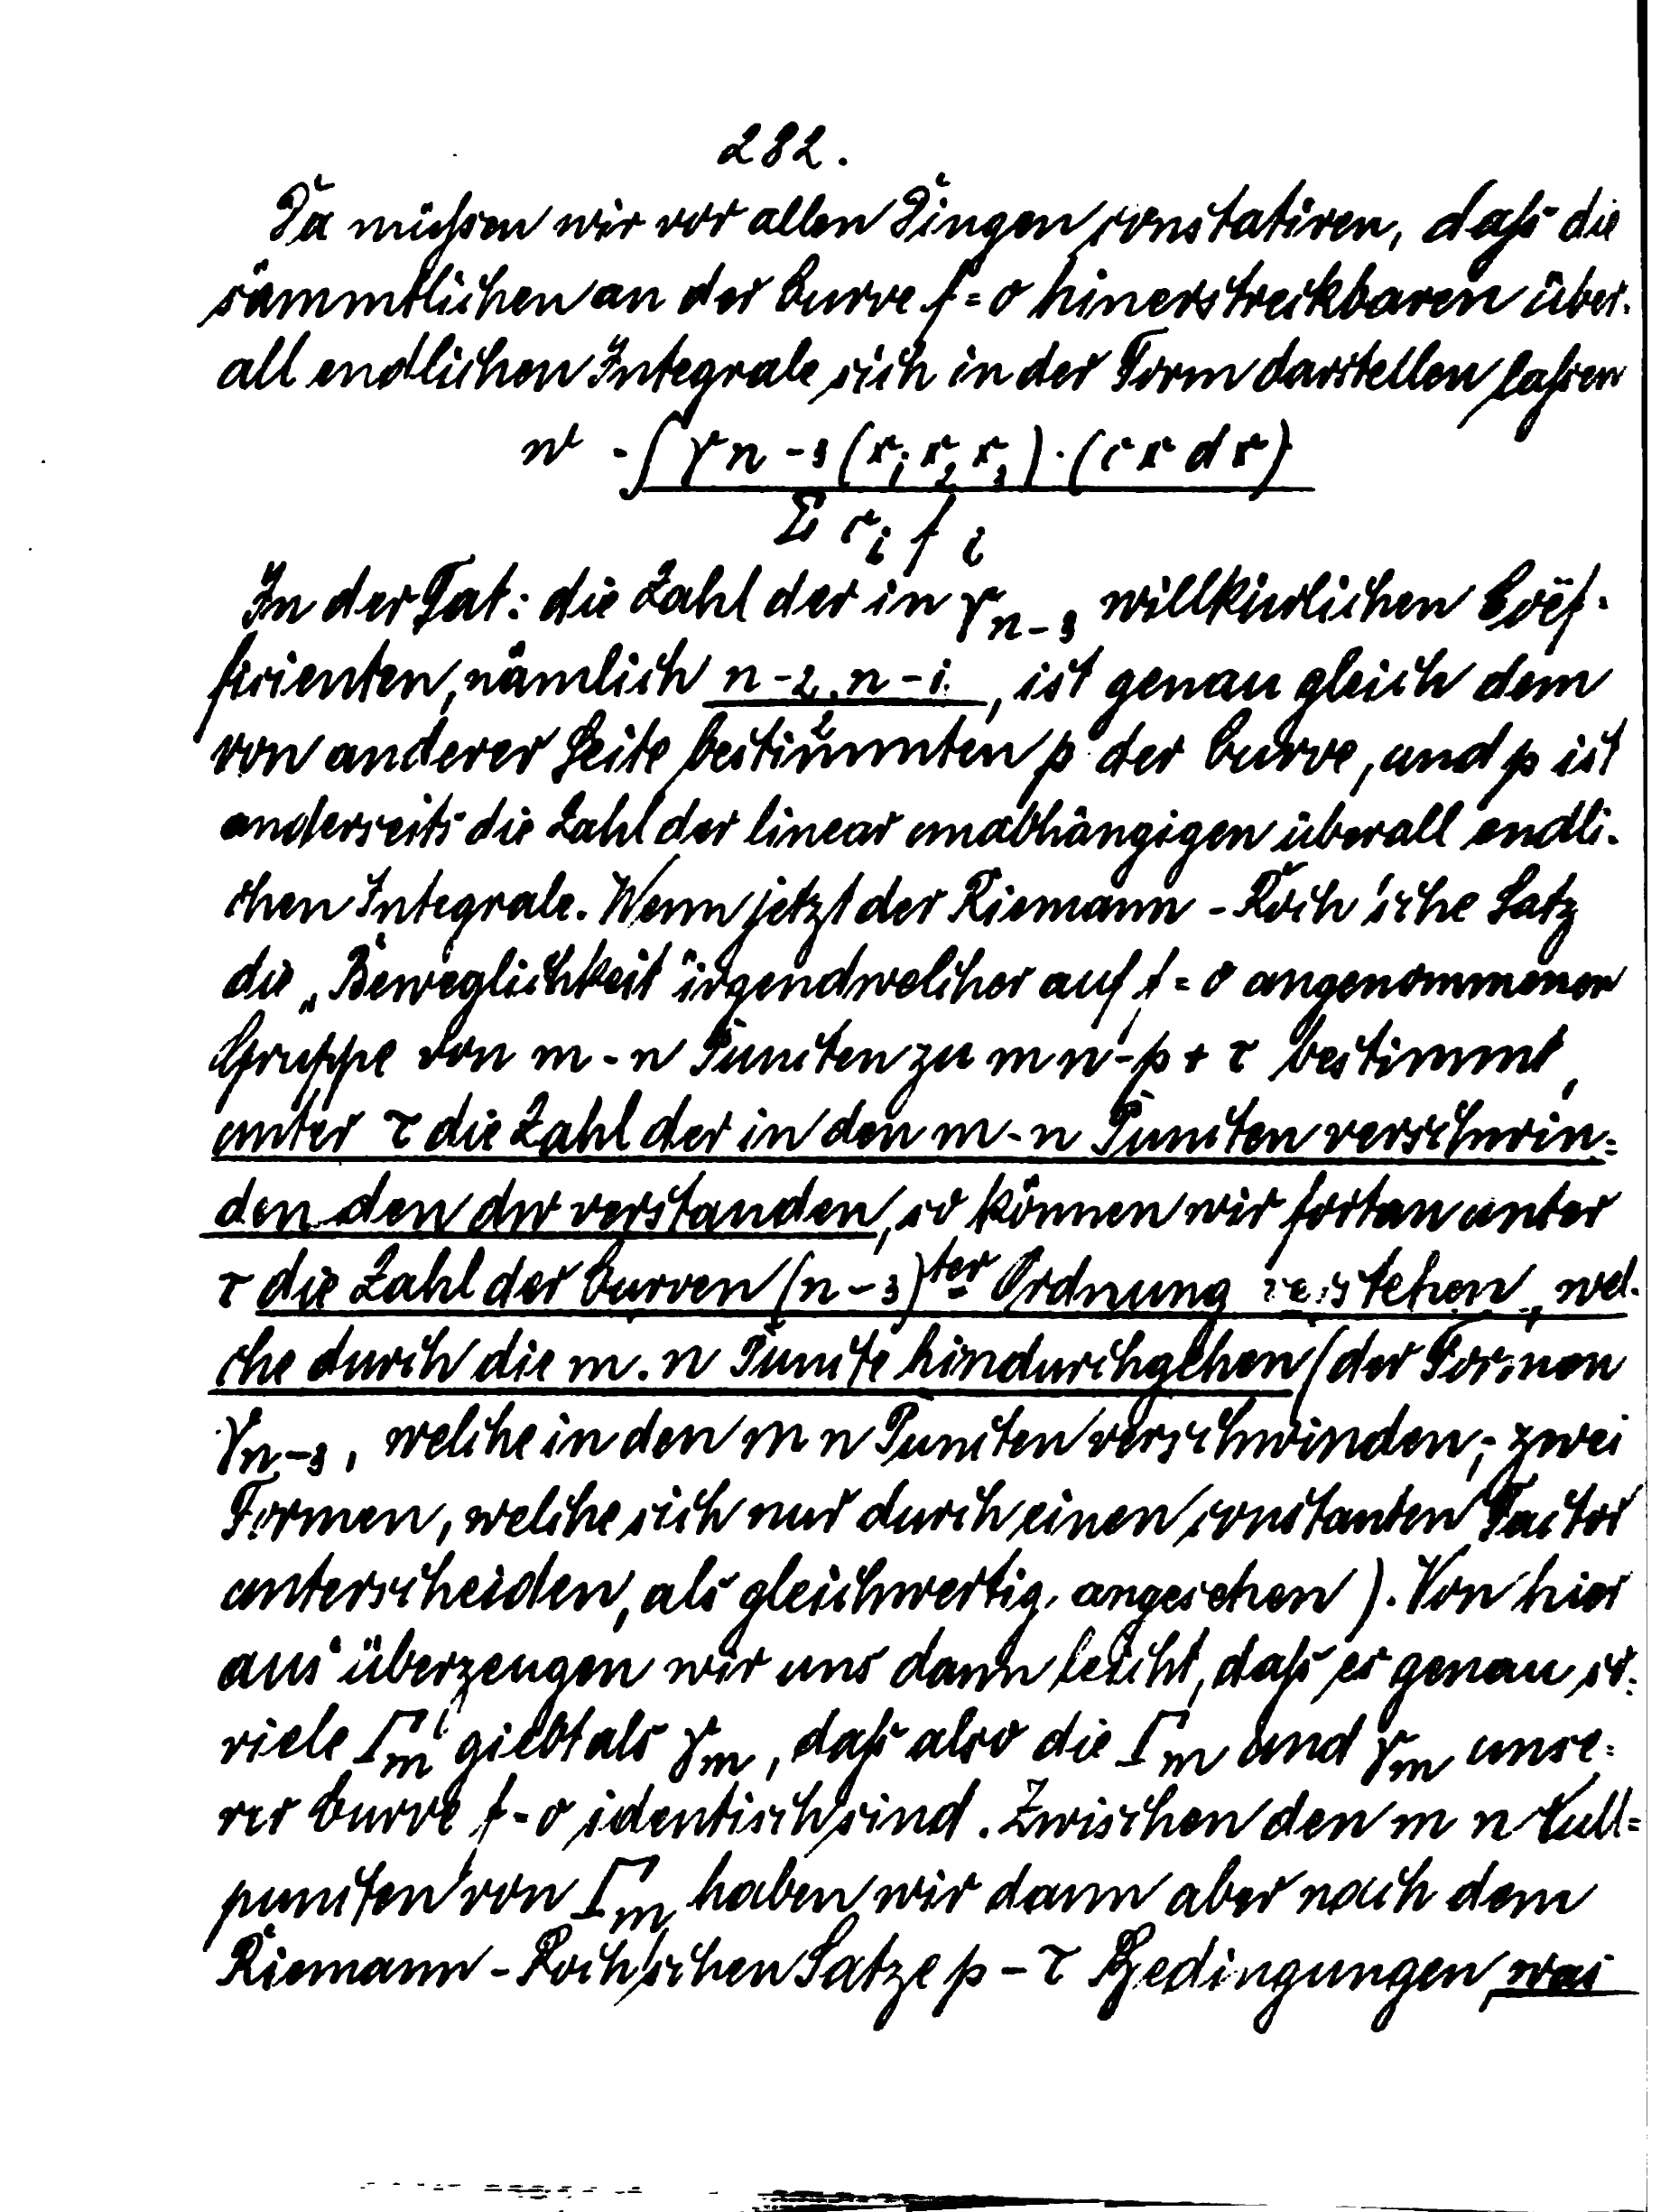 282.
Da müssen wir vor allen Dingen constatiren, daß die
sämmtlichen an der Curve f=0 hinerstreckbaren über-
all endlichen Integrale sich in der Form darstellen lassen
w = ∫ γn-3 (x₁ x₂ x₃) · (c x d x)
Σ cᵢ fᵢ
In der Tat: die Zahl der in γn-3 willkürlichen Coëf-
ficienten, nämlich n-2. n-1
2
, ist genau gleich dem
von anderer Seite bestimmten p der Curve, und p ist
anderseits die Zahl der linear unabhängigen überall endli-
chen Integrale. Wenn jetzt der Riemann-Roch'sche Satz
die „Beweglichkeit" irgendwelcher auf f=0 angenommener
Gruppe von m-n Puncten zu m n-p+τ bestimmt,
unter τ die Zahl der in den m-n Puncten verschwin-
den den dw verstanden, so können wir fortan unter
τ die Zahl der Curven (n-3)ter Ordnung verstehen, wel-
che durch die m.n Puncte hindurchgehen (der Formen
γn-3, welche in den m n Puncten verschwinden; zwei
Formen, welche sich nur durch einen constanten Factor
unterscheiden, als gleichwertig angesehen). Von hier
aus überzeugen wir uns dann leicht, daß es genau so-
viele Γm giebt als γm, daß also die Γm und γm unse-
rer Curve f=0 identisch sind. Zwischen den m n Null-
puncten von Γm haben wir dann aber nach dem
Riemann-Roch'schen Satze p-τ Bedingungen, was